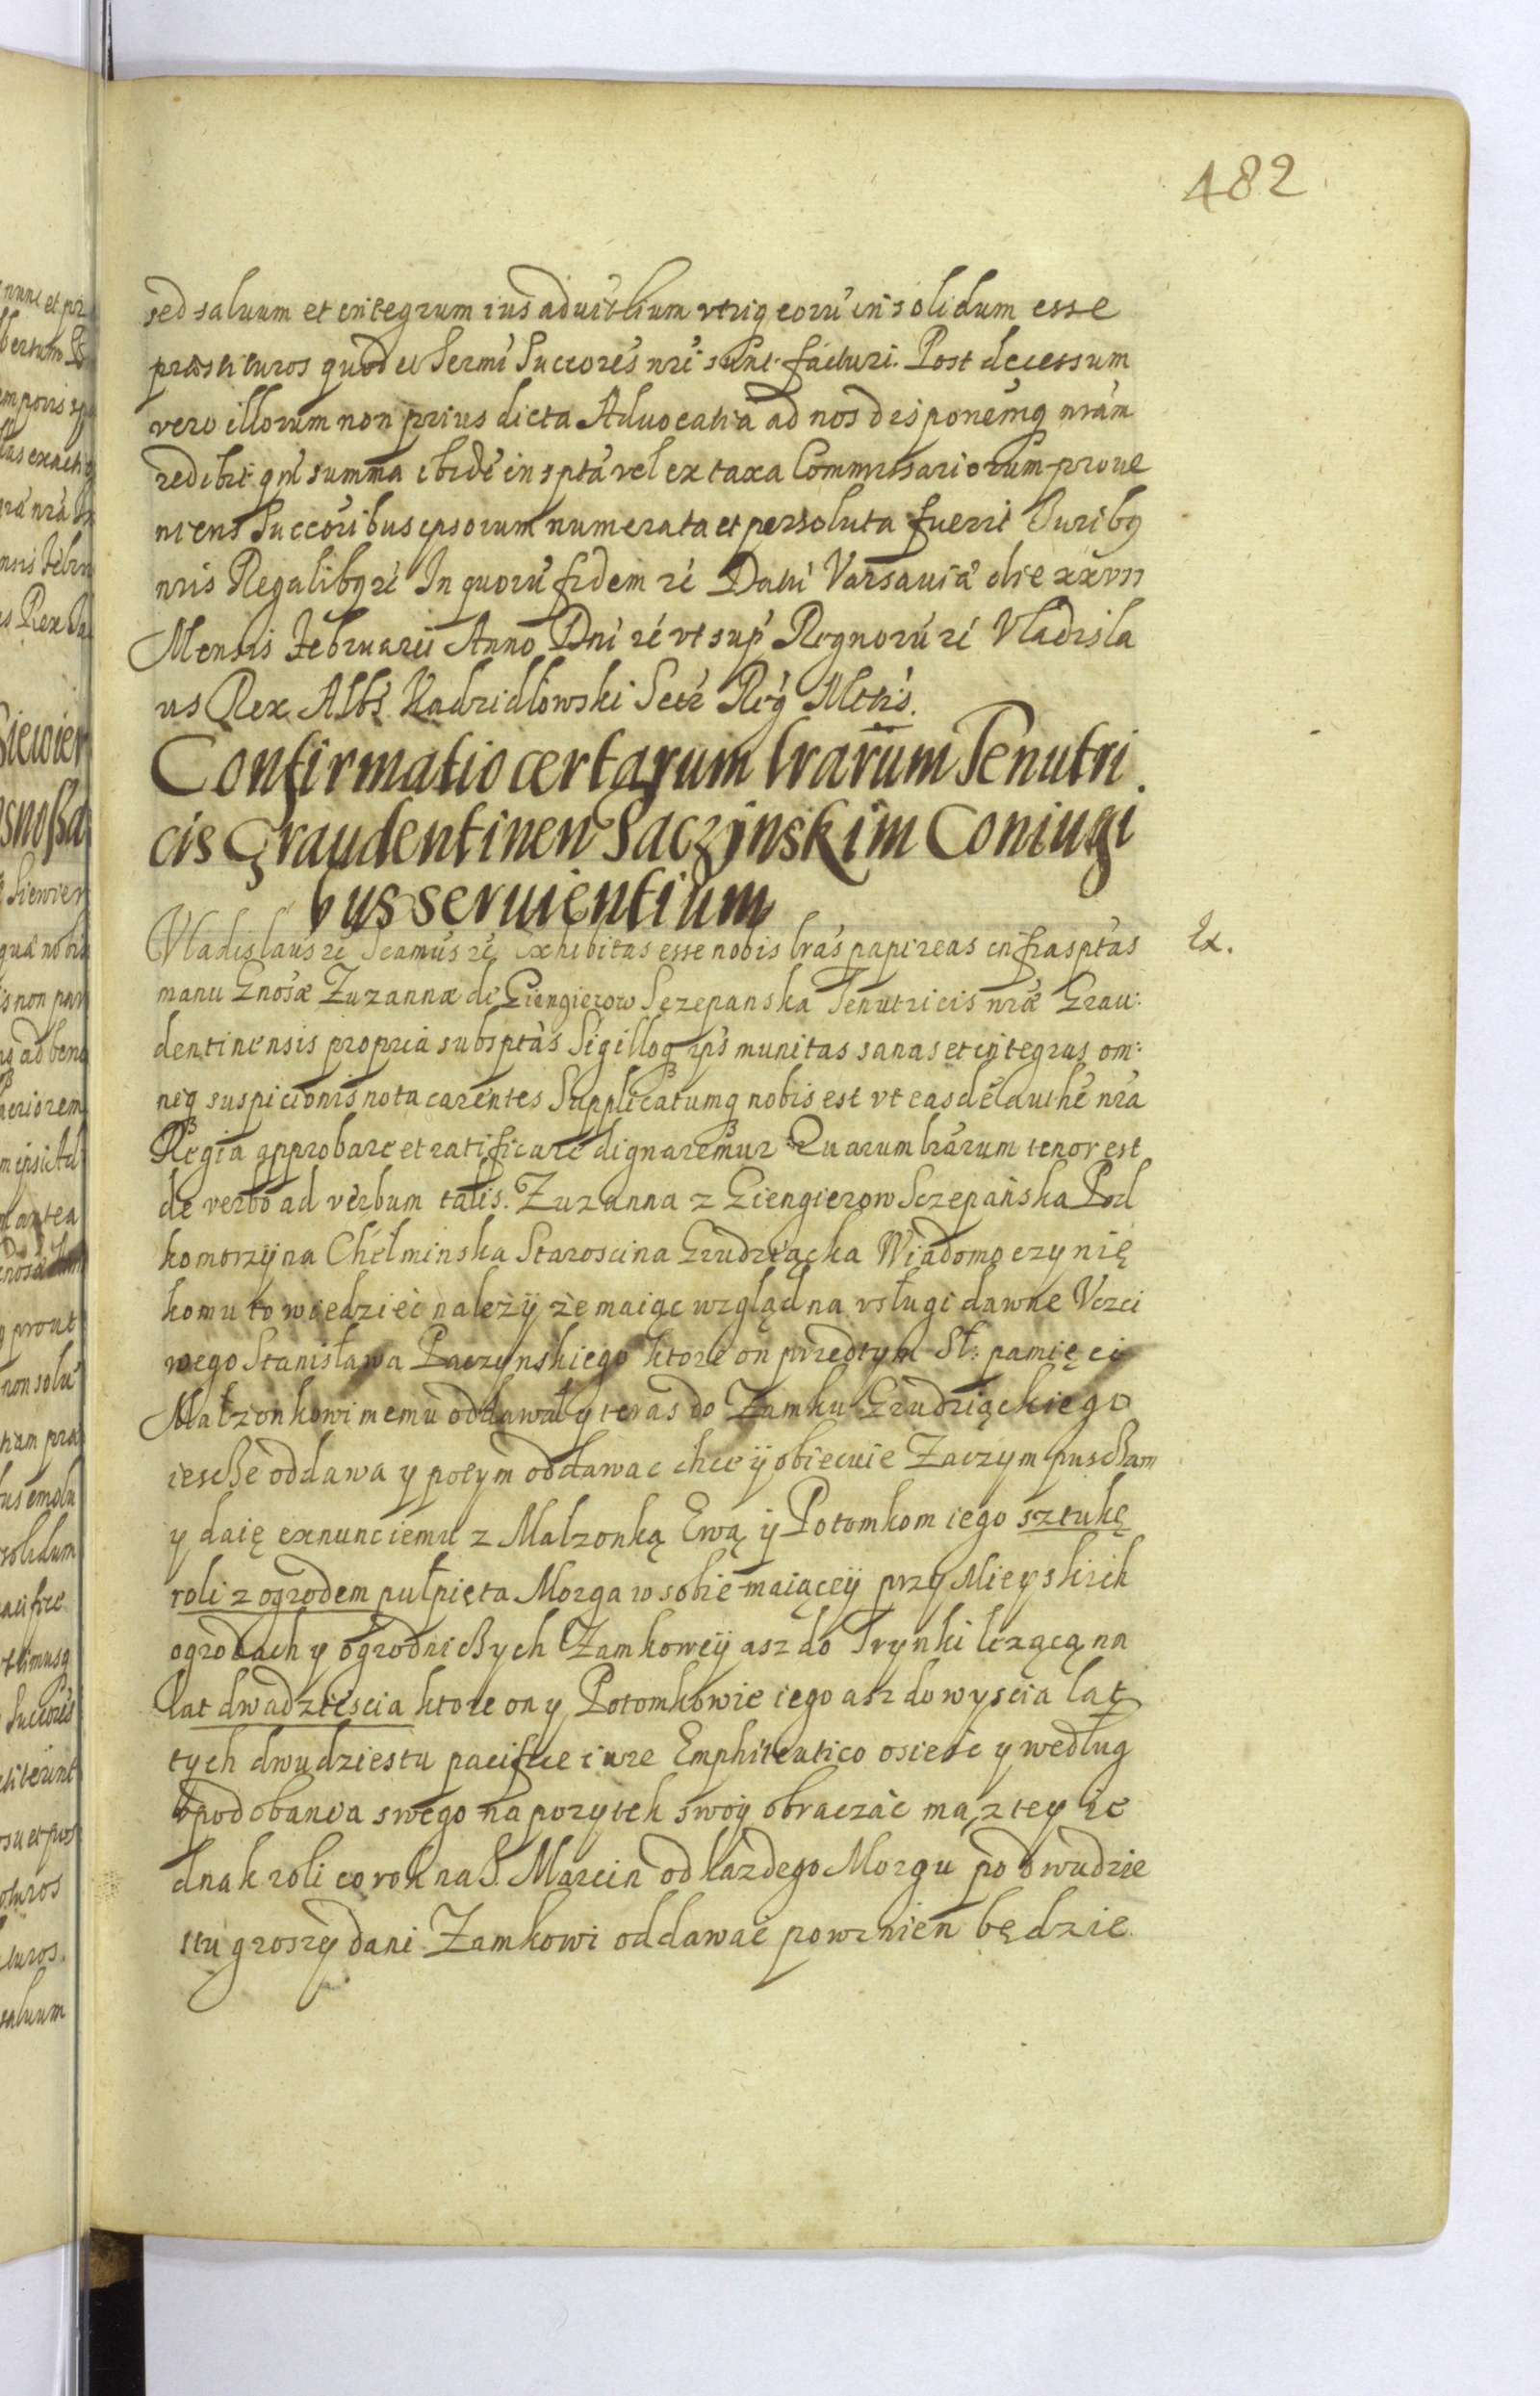 482
sed saluum et integrum ius aduitlium utriq eorū in solidum esse
praestituros quod et Sermi Succores nri sunt facturi. Post decessum
vero illorum non prius dicta Aduocatia ad nos disponemq nram
redibit qm summa ibidē in sptā vel ex taxa Commissariorum proue
niens Succoribus ipsorum numerata et persoluta fuerit Iuribq
nris Regalibq rē In quorū fidem rē Datū Varsauiæ die xxvii
Mensis Februarii Anno Dni rē vt sup Regnorū rē Vladisla
us Rex Albs Kadzidlowski Secr Reg Mttis.
Confirmatio certarum lrarum Tenutri
cis Graudentinen Paczinskim Coniugi
bus seruientium
Vladislaus rē Seamus rē Exhibitas esse nobis lras papireas infrasptas
Ex.
manu Gnosæ Zuzannæ de Giengierow Sczepanska Tenutricis nræ Grau:
dentinensis propria subsptas Sigilloq ips munitas sanas et integras om:
niq suspicionis nota carentes Supplicatumq nobis est vt easdē authē nra
Regia approbare et ratificare dignaremur Quarum lrarum tenor est
de verbo ad verbum talis. Zuzanna z Giengierow Sczepańska Pod
komorzyna Chełminska Staroscina Grudziącka Wiadomo czynię
komu to wiedzieć należÿ że maiąc wzgląd na vsługi dawne Vczci
wego Stanisława Paczynskiego ktore on przedtym Sł: pamięci
Małzonkowi memu oddawał y teras do Zamku Grudziąckiego
iescße oddawa y potym oddawac chce ÿ obiecuie Zaczym puscßam
y daię exnunc iemu z Malzonką Ewą ÿ Potomkom iego sztukę
roli z ogrodem pułpięta Morga w sobie maiąceÿ przy Mieyskich
ogrodach y ogrodnicßych Zamkoweÿ asz do Trynki lezącą na
lat dwadziescia ktore on y Potomkowie iego asz do wyscia lat
tych dwudziestu pacifice iure Emphiteutico osieść y według
vpodobania swego na pozytek swoÿ obraczać ma, z tey ie
dnak roli co rok na S. Marcin od każdego Morgu po dwudzie
stu groszy dani Zamkowi oddawać powinien będzie